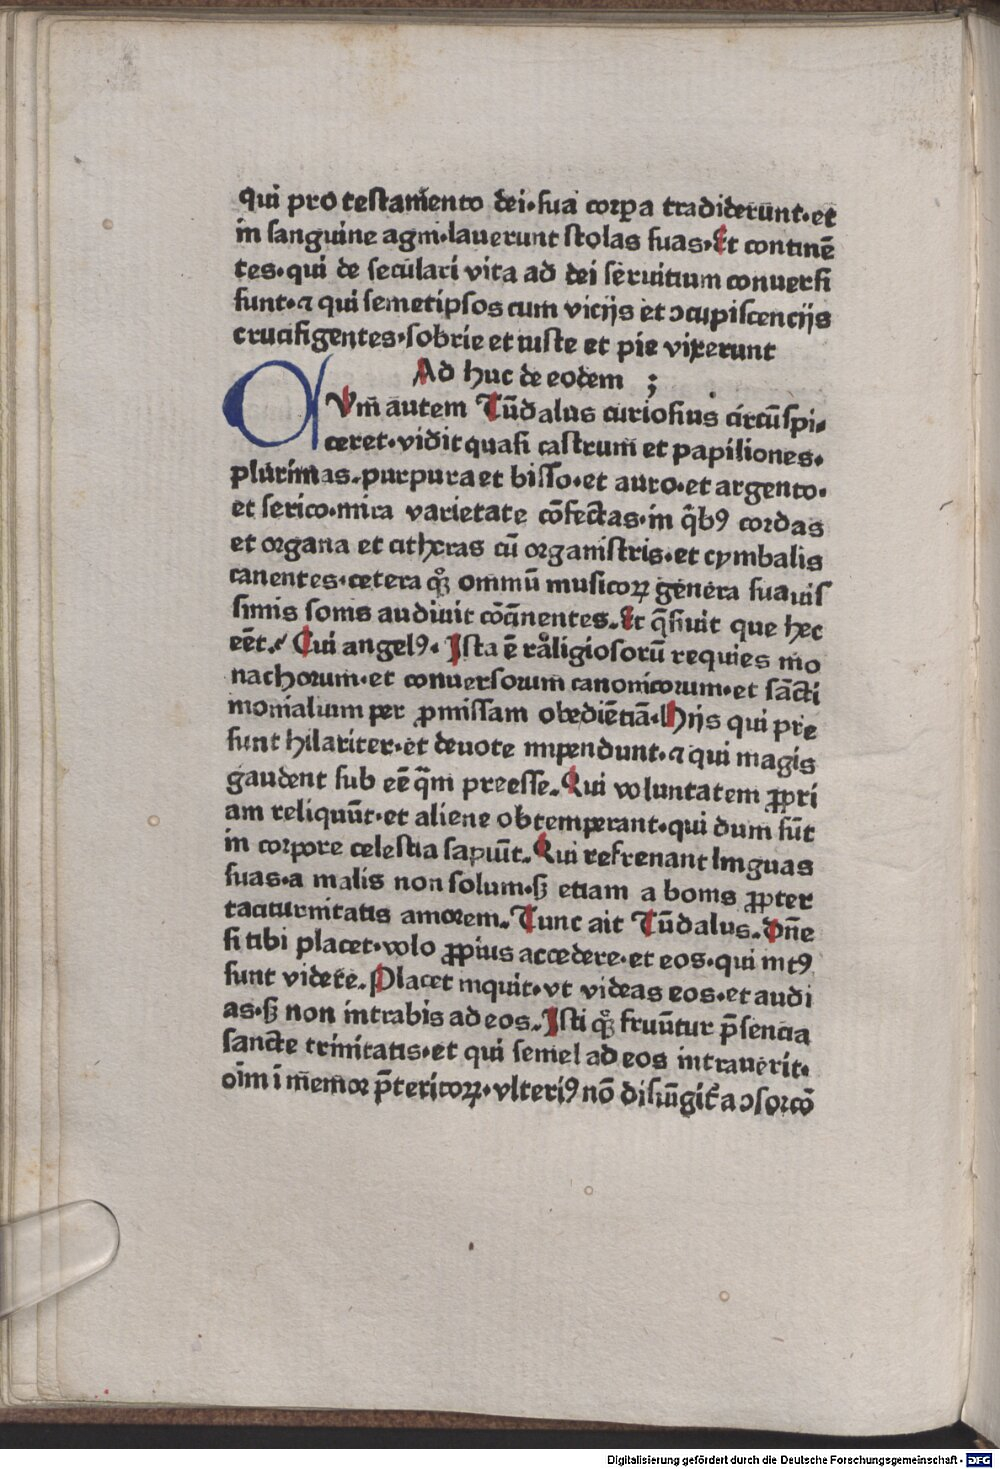 qui pro testamento dei·sua corpa tradiderunt·et
in sanguine agni·lauerunt stolas suas·Et continē
tes·qui de seculari vita ad dei seruitium conuersi
sunt·⁊ qui semetipsos cum vicijs et ɔcupiscencijs
crucifigentes·sobrie et iuste et pie vixerunt
Ad huc de eodem ;
QVm̄ autem Tūdalus curiosius circūspi-
ceret·vidit quasi castrum̄ et papiliones·
plurimas·purpura et bisso·et auro·et argento·
et serico·mira varietate cōfectas·in q̄bꝰ cordas
et organa et citheras cū organistris·et cymbalis
canentes·cetera qꝫ omniū musicoꝝ genera suauis
simis sonis audiuit cōcinentes. Et q̄siuit que hec
eēt. Cui angelꝰ. Ista ē religiosorū requies mo
nachorum·et conuersorum canonicorum·et sācti
monialium per ꝓmissam obediētiā. Hijs qui pre
sunt hilariter·et deuote inpendunt·⁊ qui magis
gaudent sub eē q̄m preesse. Qui voluntatem ꝓpri
am reliquūt·et aliene obtemperant·qui dum sūt
in corpore celestia sapiūt. Qui refrenant linguas
suas·a malis non solum·sꝫ etiam a bonis ꝓpter
taciturnitatis amorem. Tunc ait Tūdalus. Dn̄e
si tibi placet·volo ꝓpius accedere·et eos·qui intꝰ
sunt videre. Placet inquit·vt videas eos·et audi
as·sꝫ non intrabis ad eos. Isti qꝫ fruūtur p̄sencia
sancte trinitatis·et qui semel ad eos intrauerit·
oīm īmemor p̄teritoꝝ·vlteriꝰ nō disiūgit̄ a ɔsorcō
Digitalisierung gefördert durch die Deutsche Forschungsgemeinschaft - DFG